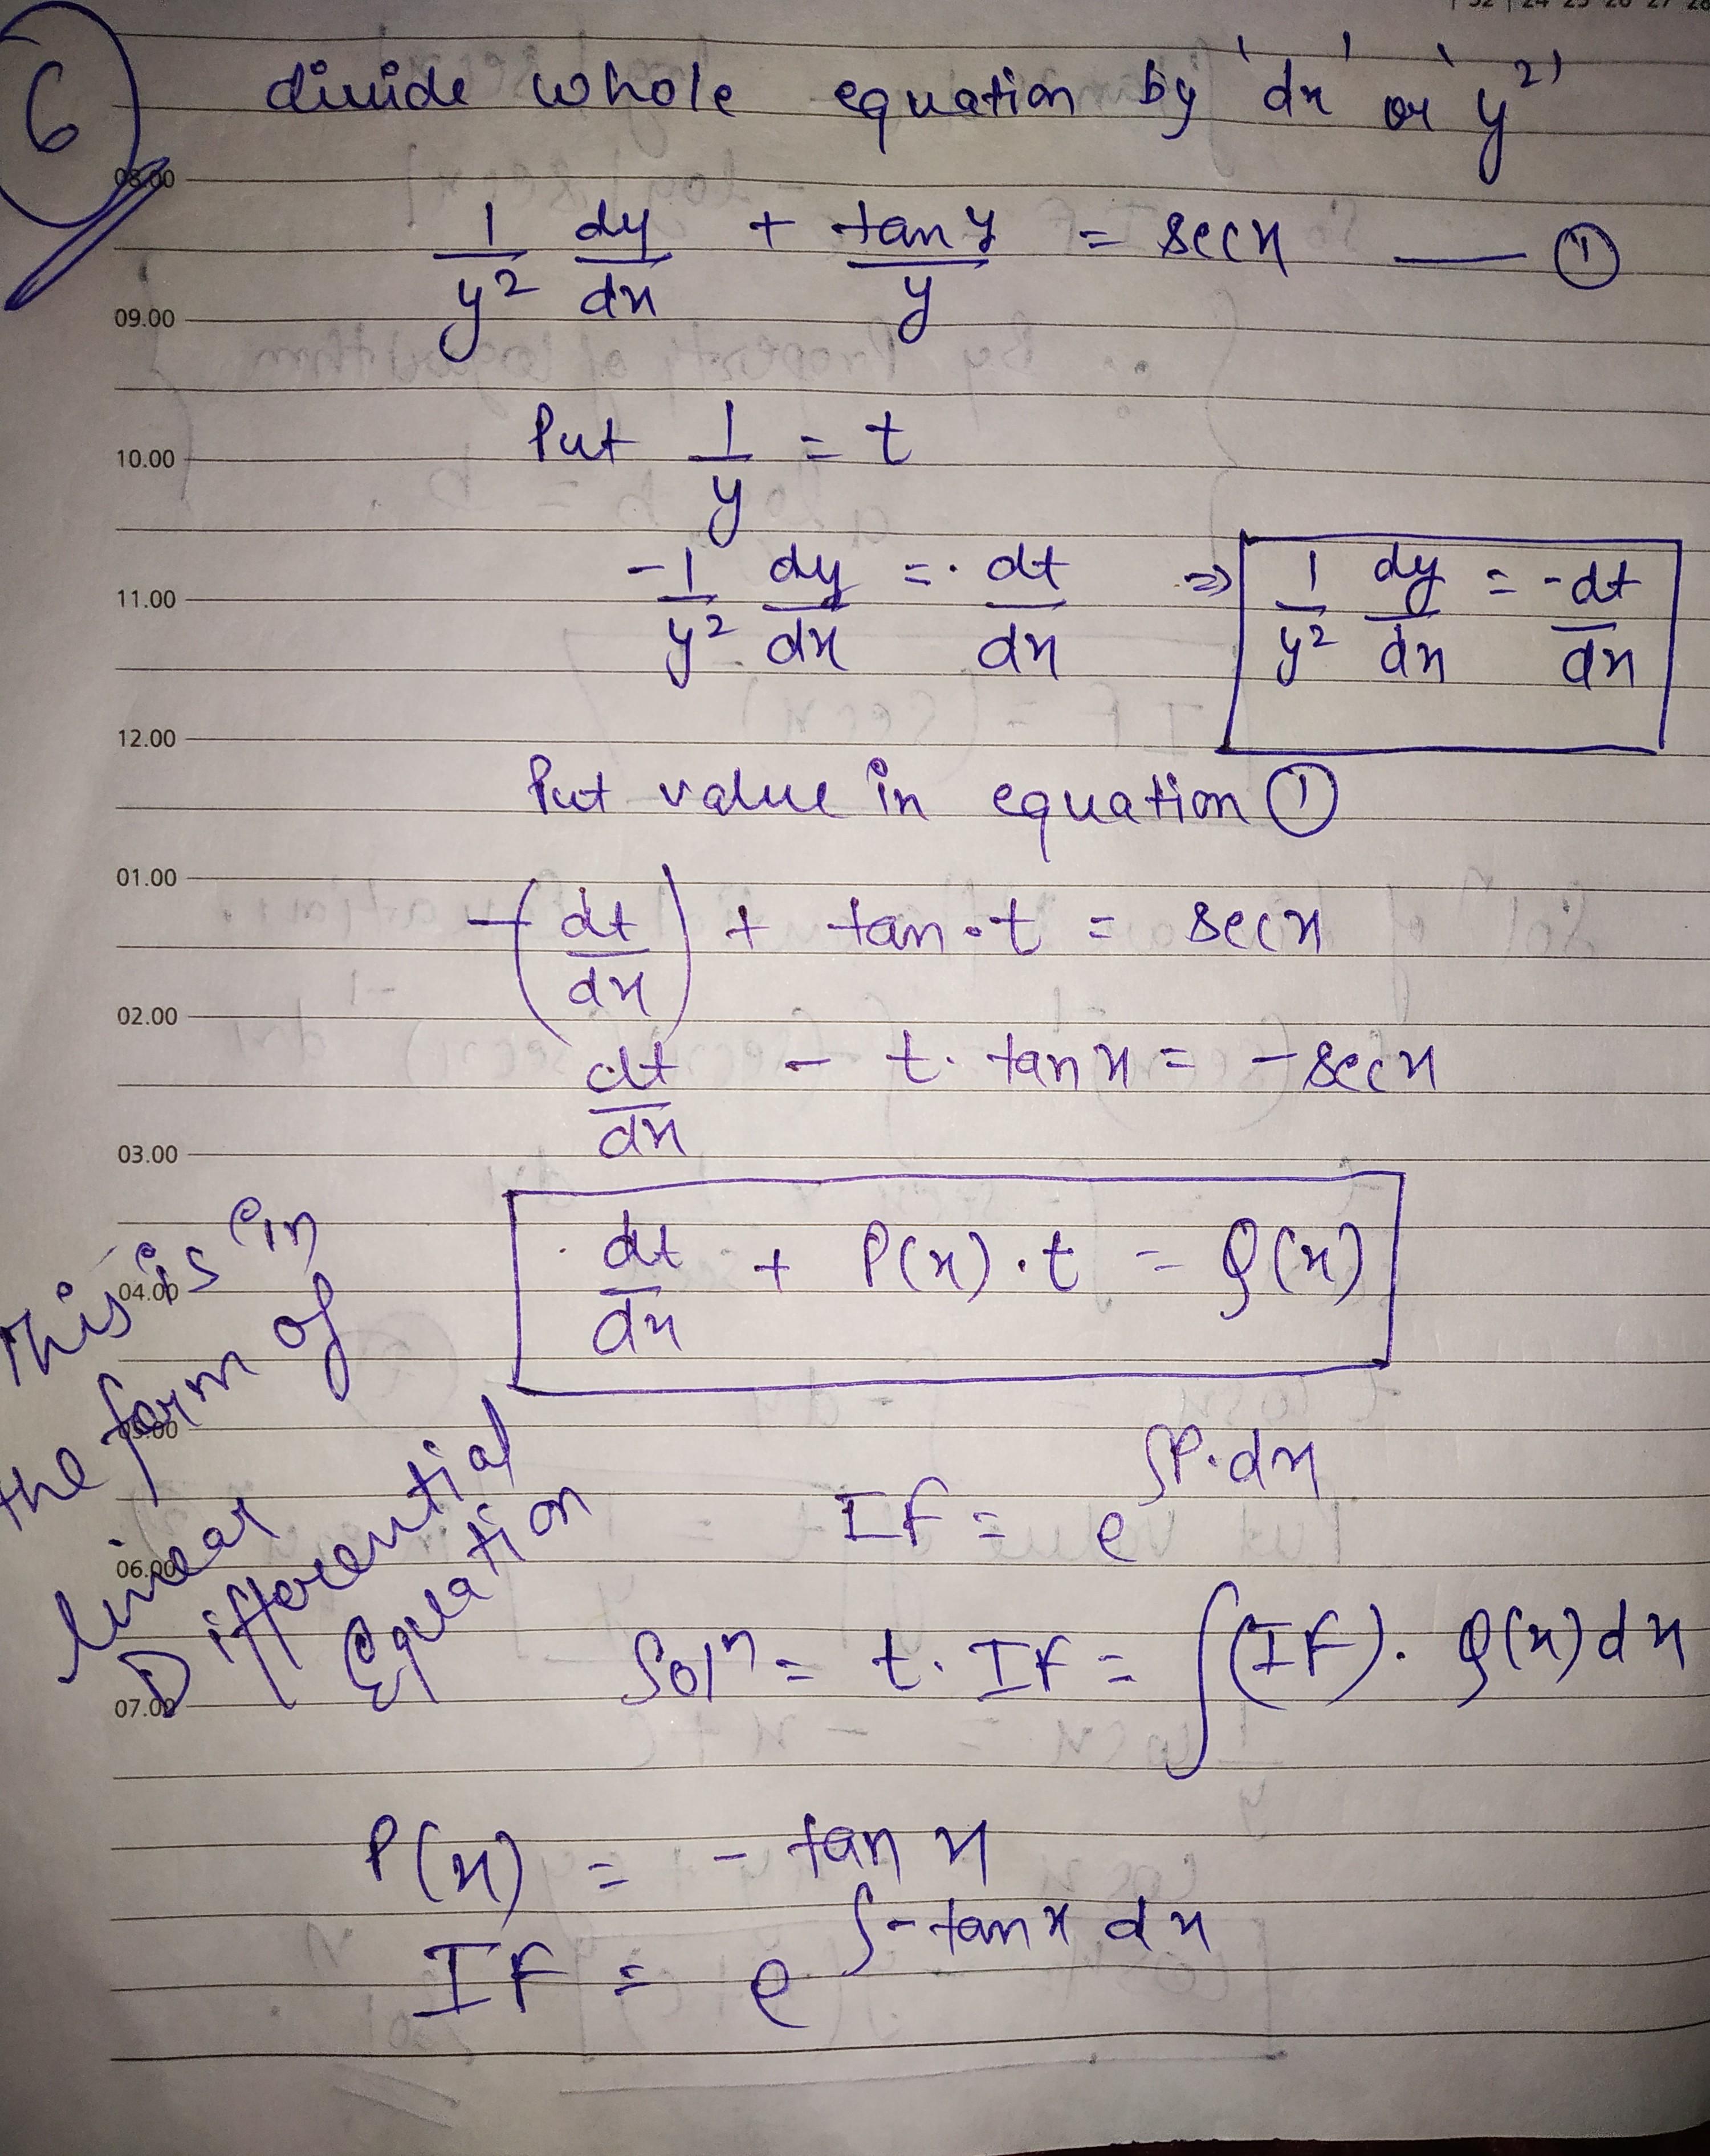 24 25 26 27 28
6
divide whole equation by 'dx' or 'y²'
08.00
1/y² dy/dx + tan y/y = secx — ①
09.00
Put 1/y = t
10.00
-1/y² dy/dx = dt/dx ⇒ 1/y² dy/dx = -dt/dx
11.00
12.00
Put value in equation ①
01.00
-(dt/dx) + tan·t = secx
02.00
dt/dx - t. tanx = -secx
03.00
dt/dx + P(x).t = Q(x)
04.00
This is in
the form of
linear
Differential
Equation
05.00
IF = e^∫P.dx
06.00
Solⁿ = t. IF = ∫(IF). Q(x)dx
07.00
P(x) = - tan x
IF = e^∫-tanx dx